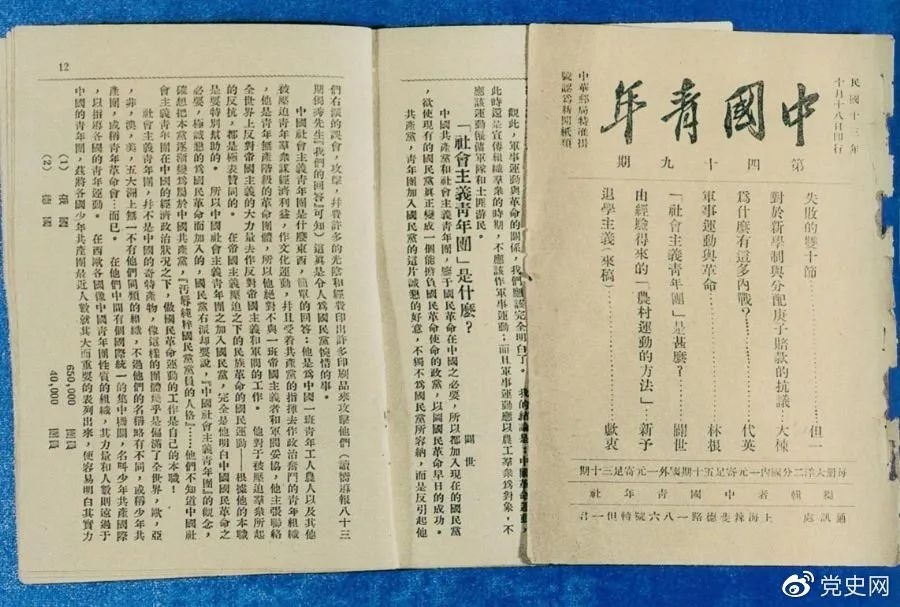 民國十三年
十月十八日印行
中國青年
中華郵局特准掛
號認爲新聞紙類
第四十九期
失敗的雙十節⋯⋯但一
對於新學制與分配庚子賠款的抗議⋯大楝
爲什麼有這多內戰?⋯⋯代英
軍事運動與革命⋯⋯林根
「社會主義青年團」是甚麼?⋯⋯闢世
由經驗得來的「農村運動的方法」⋯新予
退學主義(來稿)⋯⋯獻衷
每册大洋二分國內一元寄足五十期國外一元寄足三十期
編輯者中國青年社
通訊處 上海辣斐德路一八六號轉但一君
觀此,軍事運動與革命的關係,我們應該完全明白了。 我的結論是:中國革命運動,
此時還是宣傳組織羣衆的時期,不應該作軍事運動;而且軍事運動應以農工羣衆爲對象,不
應該運動僱傭軍隊和土匪游民。
「社會主義青年團」是什麼?
闢世
中國共產黨和社會主義青年團,鑒于國民革命在中國之必要,所以都加入現在的國民黨
,欲使現有的國民黨眞正變成一個能擔負國民革命使命的政黨,以圖國民革命早日的成功。
共產黨,青年團加入國民黨的這片誠懇的好意,不獨不爲國民黨所容納,而是反引起他
12
們右派的誤會,攻擊,并費許多的光陰和經費印出許多印刷品來攻擊他們(請讀嚮導報八十三
期獨秀先生『我們的回答』可知)這眞是令人爲國民黨惋惜的事。
中國社會主義青年團是什麼東西,簡單的回答:他是爲中國一班青年工人農人以及其他
被壓迫青年羣衆謀經濟利益,作文化運動,并且受着共產黨的指揮去作政治奮鬥的青年組織
,他是青年無產階級的革命團體,所以他絕對不與一班帝國主義者和軍閥妥協,他主張聯絡
全世界上反對帝國主義的大力量去作反對帝國主義和軍閥的工作。 他對于被壓迫羣衆所起
的反抗,都是極表贊同的。 在帝國主義壓迫之下的民族革命的國民運動——根據他的本職
是要特別幫助的。 所以中國社會主義青年團之加入國民黨,完全是他明白中國國民革命之
必要,極誠懇的爲國民革命而加入的,國民黨右派却要說,『中國社會主義青年團』的觀念,
確想把本黨逐漸變爲屬於中國共產黨,『汚辱純粹國民黨黨員的人格』⋯⋯他們不知道中國社
會主義青年團在中國的經濟政治狀況之下,做國民革命運動的工作是自己的本職!
社會主義青年團,并不是中國的奇特產物,像這樣的團體幾乎是徧滿了全世界,歐,亞
,非,澳,美,五大洲上無一不有他們同類的組織,不過他們的名稱略有不同,或稱少年共
產團,或稱青年革命會⋯而已。 在他們中間有個國際統一的集中機關,名叫少年共產國際
,以指導各國的青年運動。 在西歐各國像中國青年團性質的組織,其力量和人數則遠過于
中國的青年團,茲將各國少年共產團最近人數就其大而重要的表列出來,使容易明白其實力
(1) 650,000
(2) 40,000
党史网